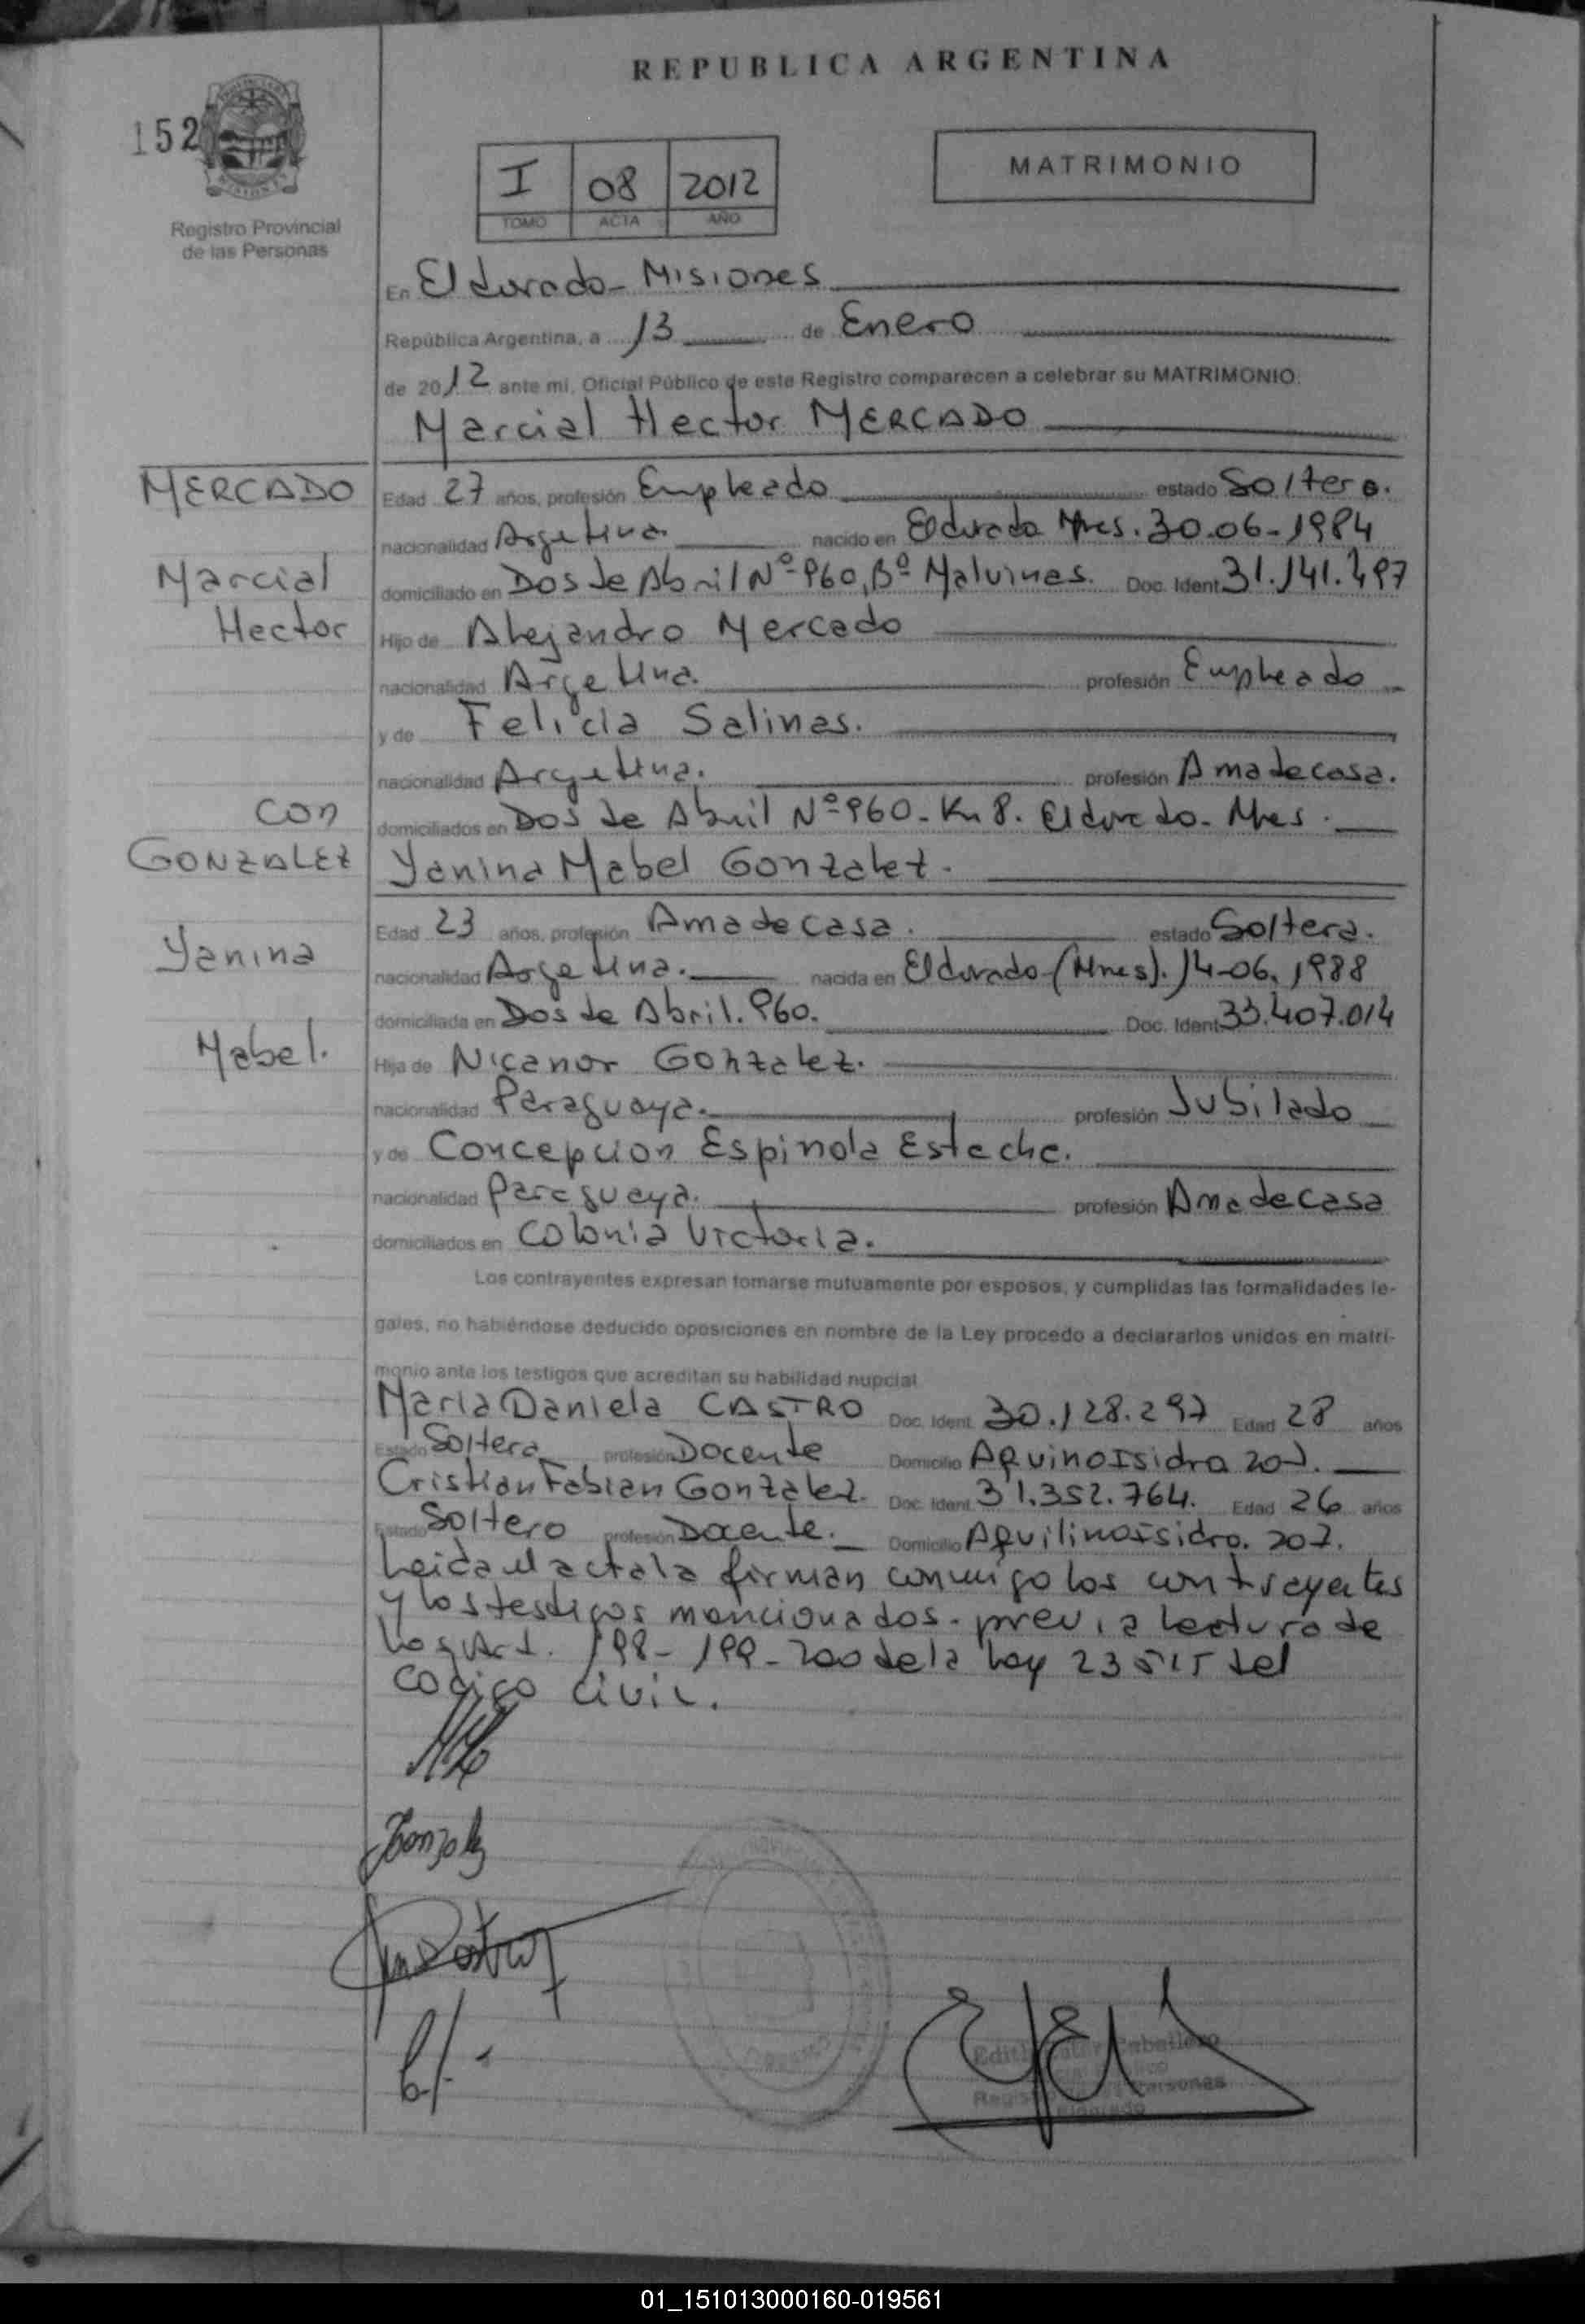 REPUBLICA ARGENTINA
152
Registro Provincial
de las Personas
I 08 2012
TOMO ACTA AÑO
MATRIMONIO
En Eldorado - Misiones
República Argentina, a 13 de Enero
de 2012 ante mi, Oficial Público de este Registro comparecen a celebrar su MATRIMONIO:
Marcial Hector MERCADO
MERCADO
Edad 27 años, profesión Empleado estado Soltero.
nacionalidad Argetina nacido en Eldorado Mnes. 30-06-1984
Marcial
domiciliado en Dos de Abril Nº 960, Bº Malvinas. Doc. Ident. 31.141.497
Hector
Hijo de Alejandro Mercado
nacionalidad Argetina. profesión Empleado
y de Felicia Salinas.
nacionalidad Argetina. profesión Ama de casa.
con
domiciliados en Dos de Abril Nº 960 - Km 8. Eldorado - Mnes.
GONZALEZ
Yanina Mabel Gonzalez.
Edad 23 años, profesión Ama de casa. estado Soltera.
Yanina
nacionalidad Argetina. nacida en Eldorado (Mnes). 14-06, 1988
domiciliada en Dos de Abril. 960. Doc. Ident. 33.407.014
Mabel.
Hija de Nicanor Gonzalez.
nacionalidad Paraguaya. profesión Jubilado
y de Concepcion Espinola Esteche.
nacionalidad Paraguaya. profesión Ama de casa
domiciliados en Colonia Victoria.
Los contrayentes expresan tomarse mutuamente por esposos, y cumplidas las formalidades le-
gales, no habiéndose deducido oposiciones en nombre de la Ley procedo a declararlos unidos en matri-
monio ante los testigos que acreditan su habilidad nupcial
Maria Daniela CASTRO Doc. Ident. 30.128.297 Edad 28 años
Estado Soltera profesión Docente Domicilio Aquino Isidro
Cristian Fabian Gonzalez. Doc. Ident. 31.352.764. Edad 26 años
Estado Soltero profesión Docente. Domicilio Aquilino Isidro. 207.
Leida el acta la firman conmigo los contrayentes
y los testigos mencionados - previa lectura de
los Art. 198 - 199 - 200 de la Ley 23515 del
codigo civil.
Gonzalez
Caballero
Personas
Eldorado
01_151013000160-019561